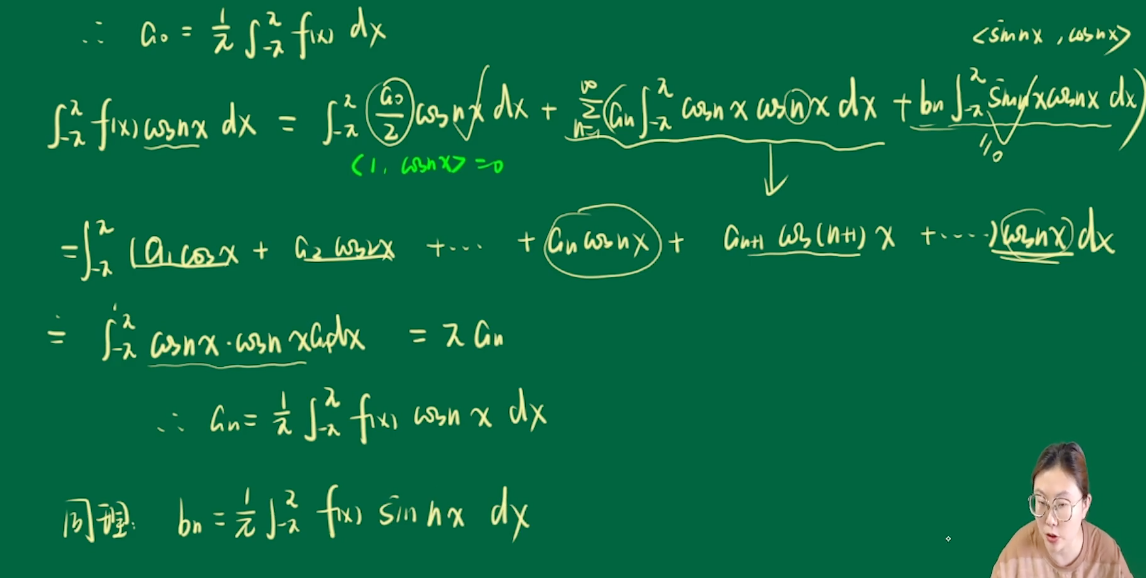 ∴ a₀ = 1/π ∫_{-π}^{π} f(x) dx
<sin nx , cos nx>
∫_{-π}^{π} f(x) cos nx dx = ∫_{-π}^{π} (a₀/2) cos nx dx + ∑_{n=1}^{∞} (aₙ ∫_{-π}^{π} cos nx cos nx dx + bₙ ∫_{-π}^{π} sin nx cos nx dx)
<1, cos nx> = 0
= 0
= ∫_{-π}^{π} (a₁ cos x + a₂ cos 2x + ⋯ + aₙ cos nx + aₙ₊₁ cos (n+1) x + ⋯⋯) cos nx dx
= ∫_{-π}^{π} cos nx · cos nx aₙ dx = π aₙ
∴ aₙ = 1/π ∫_{-π}^{π} f(x) cos nx dx
同理: bₙ = 1/π ∫_{-π}^{π} f(x) sin nx dx